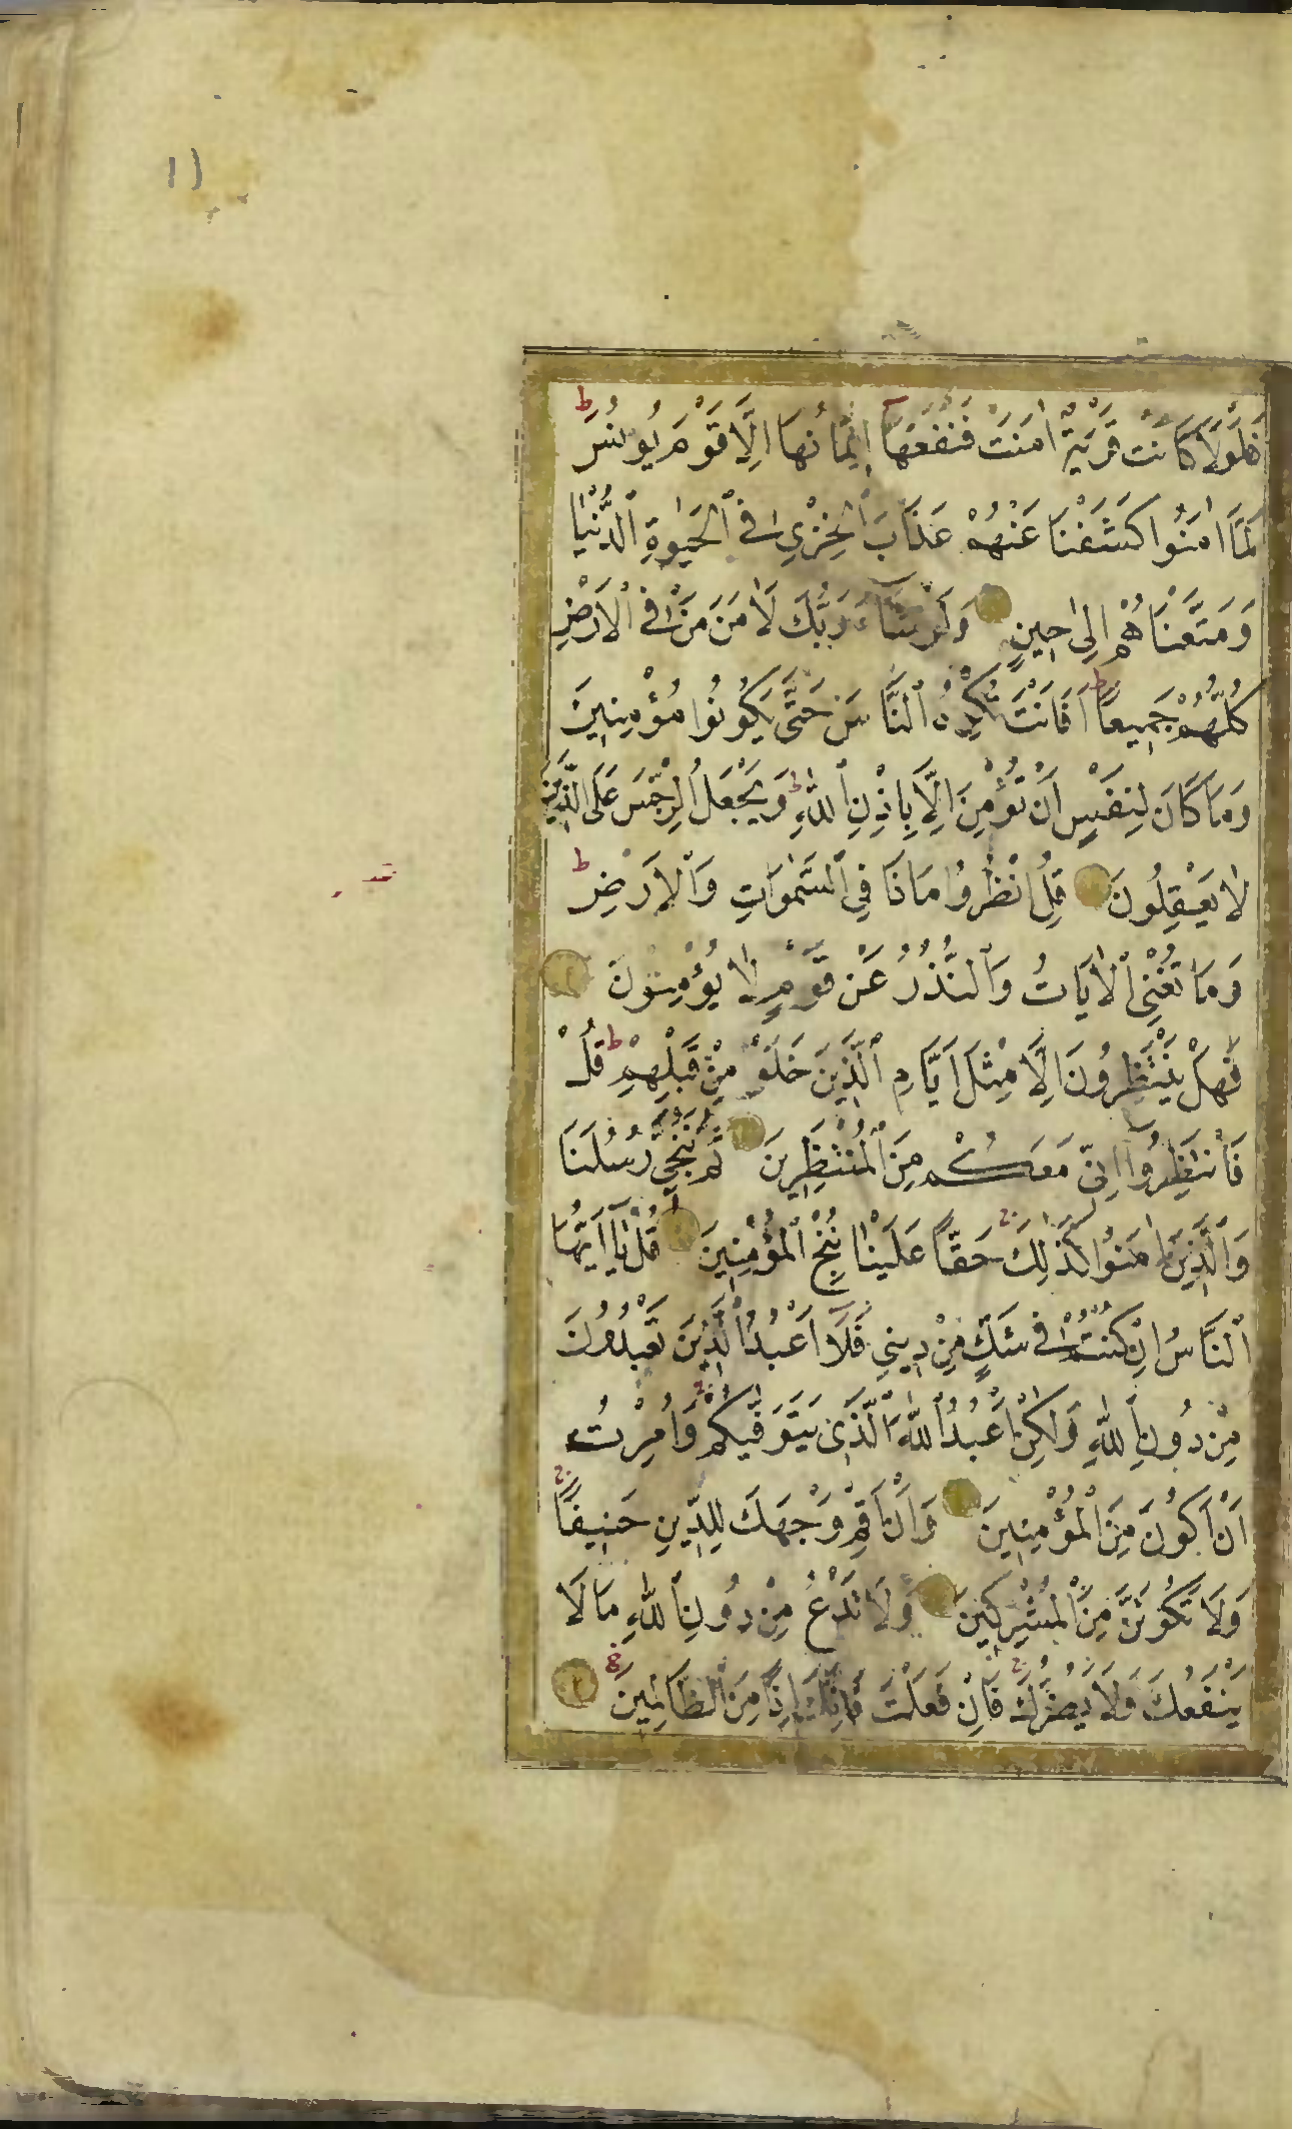 ١١
فَلَوْلَا كَانَتْ قَرْيَةٌ اٰمَنَتْ فَنَفَعَهَٓا اِيمَانُهَا اِلَّا قَوْمَ يُونُسَ ط
لَمَّا اٰمَنُوا كَشَفْنَا عَنْهُمْ عَذَابَ ٱلْخِزْيِ فِي ٱلْحَيٰوةِ ٱلدُّنْيَا
وَمَتَّعْنَاهُمْ اِلٰى حِينٍ وَلَوْ شَٓاءَ رَبُّكَ لَاٰمَنَ مَنْ فِي ٱلْاَرْضِ
كُلُّهُمْ جَمِيعًا ط اَفَاَنْتَ تُكْرِهُ ٱلنَّاسَ حَتَّى يَكُونُوا مُؤْمِنِينَ
وَمَا كَانَ لِنَفْسٍ اَنْ تُؤْمِنَ اِلَّا بِاِذْنِ ٱللّٰهِ ط وَيَجْعَلُ ٱلرِّجْسَ عَلَى الَّذِينَ
لَا يَعْقِلُونَ قُلِ ٱنْظُرُوا مَاذَا فِي ٱلسَّمٰوَاتِ وَٱلْاَرْضِ ط
وَمَا تُغْنِي ٱلْاٰيَاتُ وَٱلنُّذُرُ عَنْ قَوْمٍ لَا يُؤْمِنُونَ
فَهَلْ يَنْتَظِرُونَ اِلَّا مِثْلَ اَيَّامِ ٱلَّذِينَ خَلَوْا مِنْ قَبْلِهِمْ ط قُلْ
فَٱنْتَظِرُٓوا اِنِّي مَعَكُمْ مِنَ ٱلْمُنْتَظِرِينَ ثُمَّ نُنَجِّي رُسُلَنَا
وَٱلَّذِينَ اٰمَنُوا كَذٰلِكَ ج حَقًّا عَلَيْنَا نُنْجِ ٱلْمُؤْمِنِينَ قُلْ يَٓا اَيُّهَا
ٱلنَّاسُ اِنْ كُنْتُمْ فِي شَكٍّ مِنْ دِينِي فَلَٓا اَعْبُدُ ٱلَّذِينَ تَعْبُدُونَ
مِنْ دُونِ ٱللّٰهِ وَلٰكِنْ اَعْبُدُ ٱللّٰهَ ٱلَّذِي يَتَوَفّٰيكُمْ ج وَاُمِرْتُ
اَنْ اَكُونَ مِنَ ٱلْمُؤْمِنِينَ وَاَنْ اَقِمْ وَجْهَكَ لِلدِّينِ حَنِيفًا ج
وَلَا تَكُونَنَّ مِنَ ٱلْمُشْرِكِينَ وَلَا تَدْعُ مِنْ دُونِ ٱللّٰهِ مَا لَا
يَنْفَعُكَ وَلَا يَضُرُّكَ ج فَاِنْ فَعَلْتَ فَاِنَّكَ اِذًا مِنَ ٱلظَّالِمِينَ